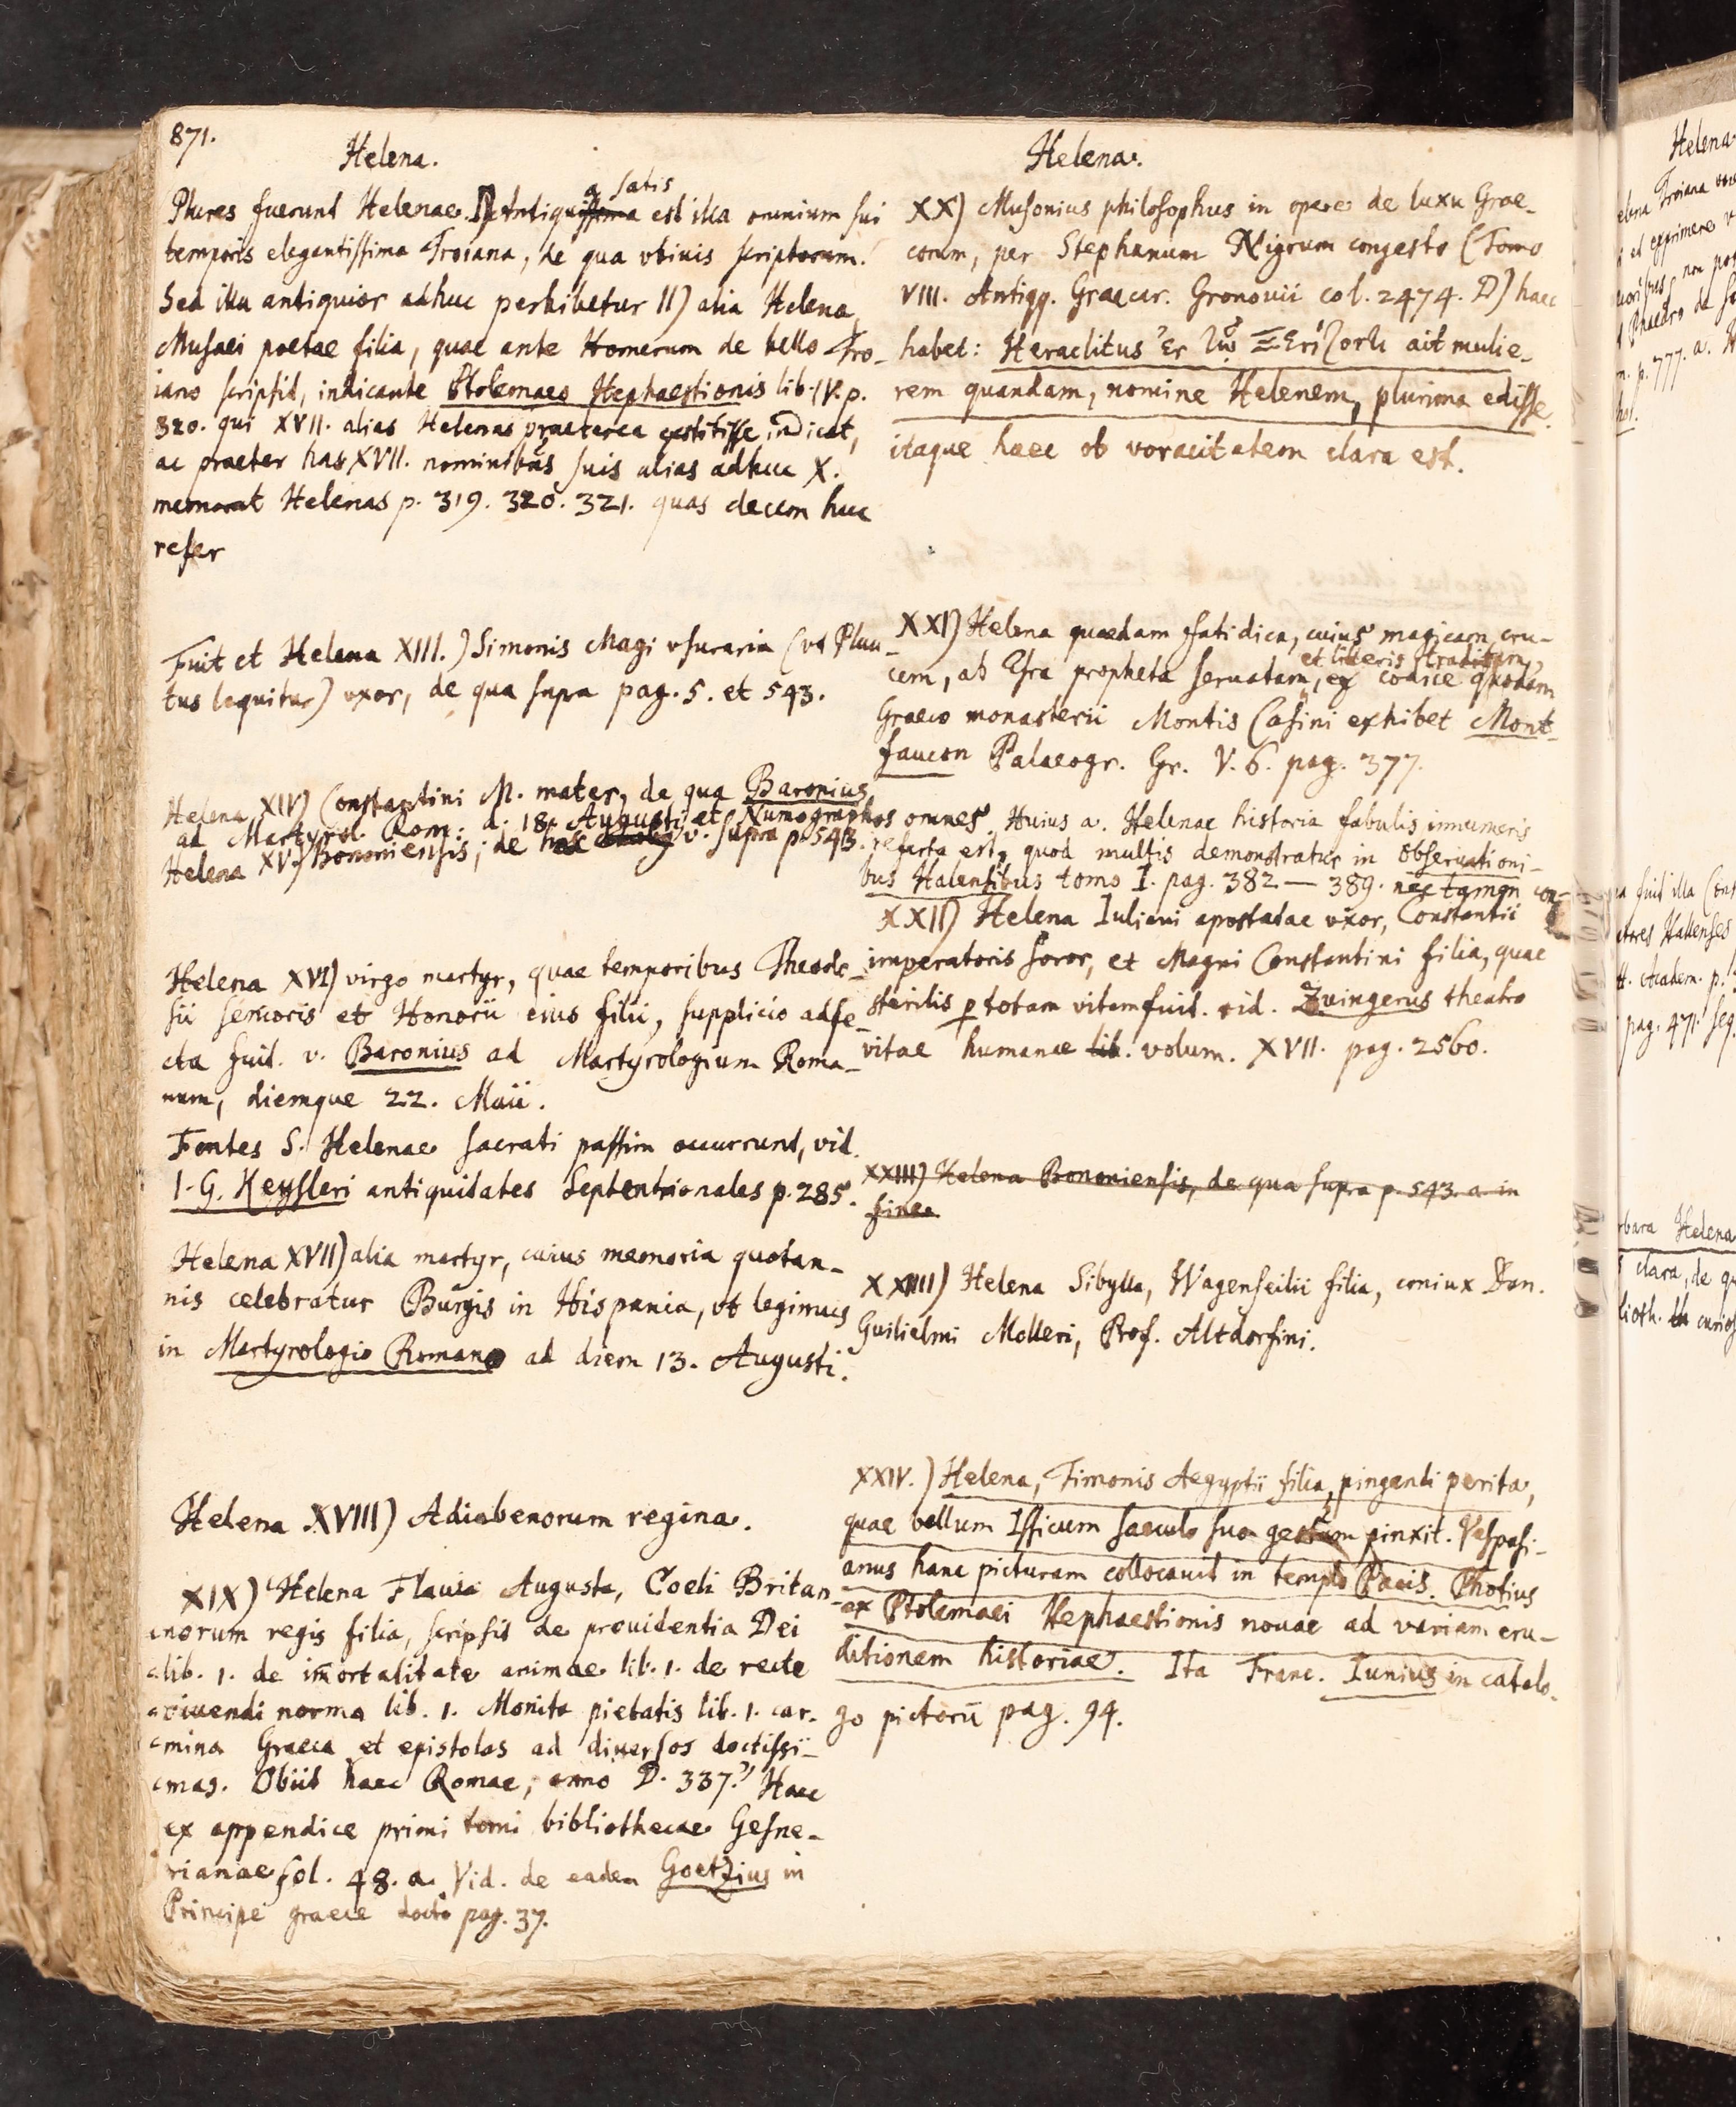 871.
Helena.
Plures fuerunt Helenae. I) Antiqua satis est illa omnium sui
temporis elegantissima Troiana, de qua vbiuis scriptorum.
Sed illa antiquior adhuc perhibetur II) alia Helena,
Musaei poetae filia, quae ante Homerum de bello Tro-
iano scripsit, indicante Ptolemaeo Hephaestionis lib. IV. p.
320. qui XVII. alias Helenas praeterea exstitisse indicat,
ac praeter has XVII. nominibus suis alias adhuc X.
memorat Helenas p. 319. 320. 321. quas decem huc
refer
Fuit et Helena XIII.) Simonis Magi vsuraria (vt Plau-
tus loquitur) vxor, de qua supra pag. 5. et 543.
Helena XIV) Constantini M. mater, de qua Baronius
ad Martyrol. Rom. d. 18. Augusti et Numographos omnes.
Helena XV) Bononiensis; de hac v. supra p. 543.
Helena XVI) virgo martyr, quae temporibus Theodo-
sii senioris et Honorii eius filii, supplicio adfe-
cta fuit. v. Baronius ad Martyrologium Roma-
num, diemque 22. Maii.
Fontes S. Helenae sacrati passim occurrunt, vid.
I. G. Keysleri antiquitates Septentrionales p. 285.
Helena XVII) alia martyr, cuius memoria quotan-
nis celebratur Burgis in Hispania, vt legimus
in Martyrologio Romano ad diem 13. Augusti.
Helena XVIII) Adiabenorum regina.
XIX) Helena Flauia Augusta, Coeli Britan-
norum regis filia, scripsit de prouidentia Dei
lib. 1. de im̄ortalitate animae lib. 1. de recte
viuendi norma lib. 1. Monita pietatis lib. 1. car-
mina Graeca et epistolas ad diuersos doctissi-
mas. Obiit haec Romae, anno D. 337." Haec
ex appendice primi tomi bibliothecae Gesne-
rianae fol. 48. a. Vid. de eadem Goetzius in
Principe graece docto pag. 37.
Helena.
XX) Musonius philosophus in opere de luxu Grae-
corum, per Stephanum Nigrum congesto (Tomo
VIII. Antiqq. Graecar. Gronouii col. 2474. D) haec
habet: Heraclitus ait mulie-
rem quandam, nomine Helenem, plurima edisse.
itaque haec ob voracitatem clara est.
XXI) Helena quaedam fatidica, cuius magicam cru-
cem, ab Esra propheta seruatam, et litteris traditam, ex codice quodam
Graeco monasterii Montis Casini exhibet Mont-
faucon Palaeogr. Gr. V. 6. pag. 377.
Huius a. Helenae historia fabulis innumeris
referta est, quod multis demonstratur in Obseruationi-
bus Halensibus tomo I. pag. 382 — 389. nec tamen con-
XXII) Helena Iuliani apostatae vxor, Constantii
imperatoris soror, et Magni Constantini filia, quae
sterilis p totam vitam fuit. vid. Zvingerus theatro
vitae humanae lib. volum. XVII. pag. 2560.
XXIII) Helena Bononiensis, de qua supra p. 543. a in
fine.
XXIII) Helena Sibylla, Wagenseilii filia, coniux Dan.
Guilielmi Molleri, Prof. Altdorfini.
XXIV.) Helena, Timonis Aegyptii filia, pingendi perita,
quae bellum Issicum saeculo suo gestum pinxit. Vespasi-
anus hanc picturam collocauit in templo Pacis. Photius
ex Ptolemaei Hephaestionis nouae ad variam eru-
ditionem historiae. Ita Franc. Iunius in catalo-
go pictorū pag. 94.
Helena
elena Troiana
et exprimere
non
Phaedro de
p. 777. a.
fuit illa
Hallenses
Academ. p.
pag. 471. seq.
Helena
clara, de